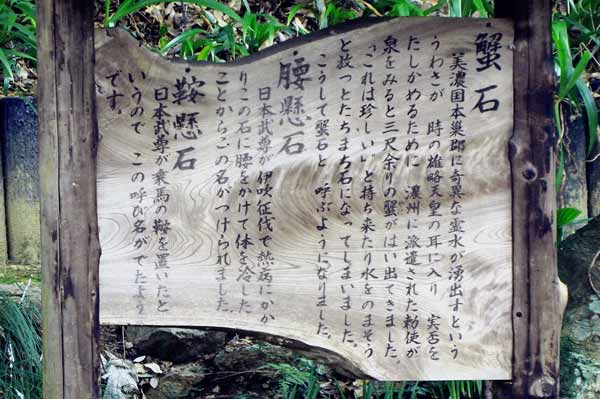 ・蟹石
美濃国本巣郡に奇異な霊水が湧出すという
うわさが 時の雄略天皇の耳に入り 実否を
たしかめるために 濃州に派遣された勅使が
泉をみると三尺余りの蟹がはい出てきました。
「これは珍しい」と持ち来たり水をのまそう
と放つとたちまち石になってしまいました。
こうして蟹石と 呼ぶようになりました。
・腰懸石
日本武尊が伊吹征伐で熱病にかか
りこの石に腰をかけて体を冷した
ことからこの名がつけられました。
・鞍懸石
日本武尊が乗馬の鞍を置いたと
いうので この呼び名がでたよう
です。